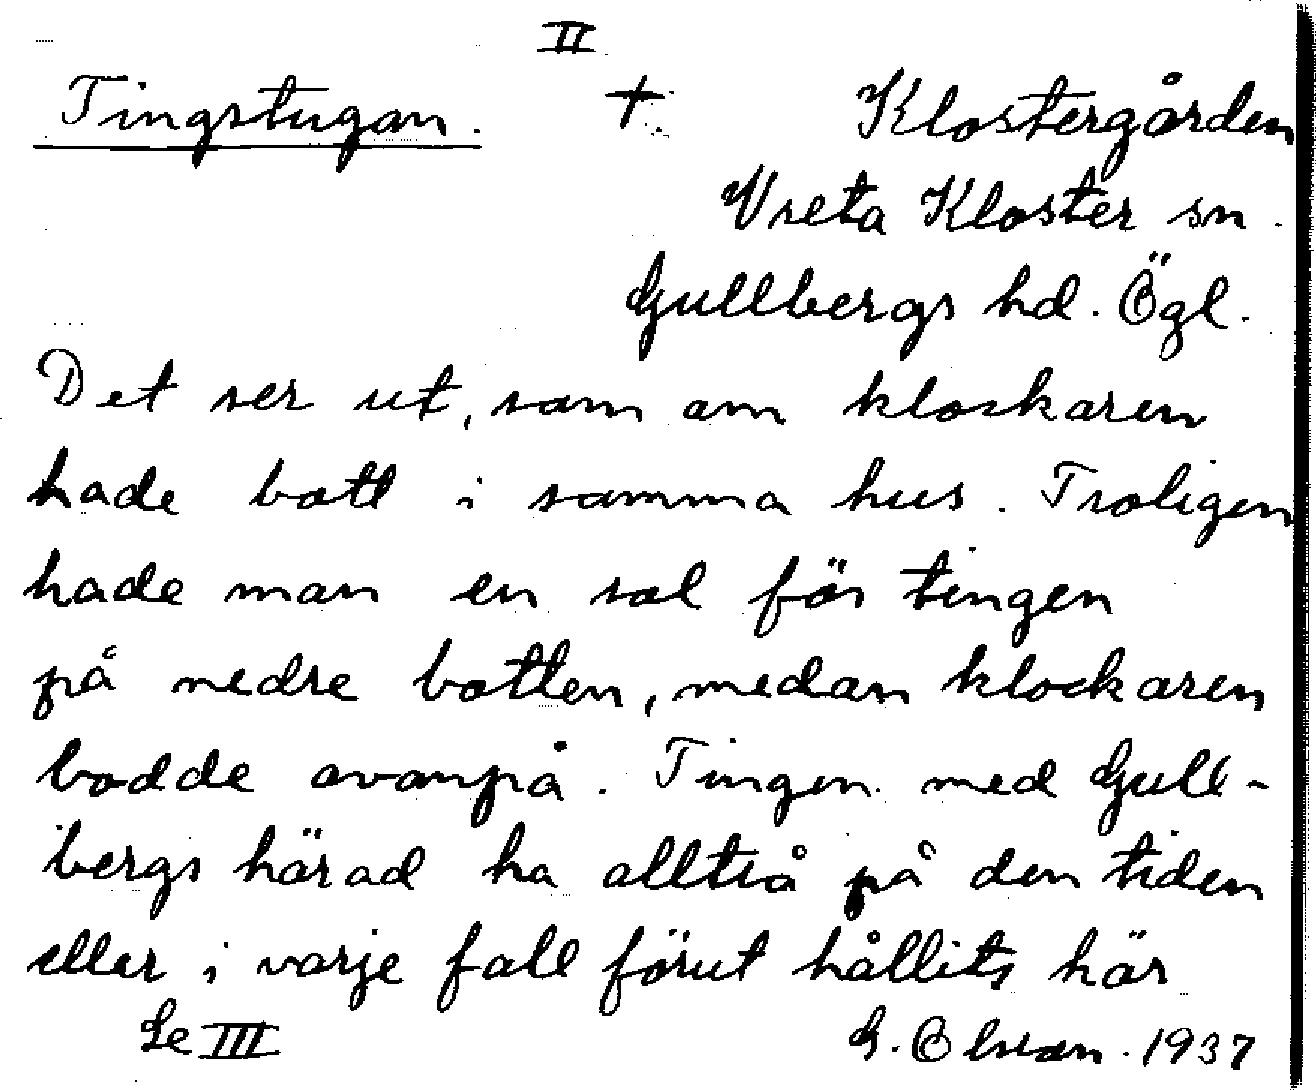 II
Tingstugan. +. Klostergården
Vreta Kloster sn.
Gullbergs hd. Ögl.
Det ser ut, som om klockaren
hade bott i samma hus. Troligen
hade man en sal för tingen
på nedre botten, medan klockaren
bodde ovanpå. Tingen med Gull-
bergs härad ha alltså på den tiden
eller i varje fall förut hållits här
Se III G. Olson. 1937